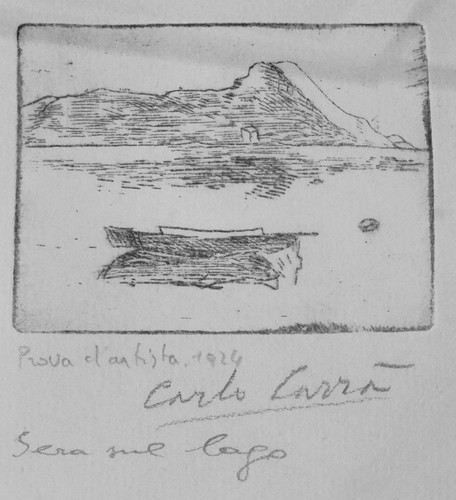 Prova d'artista, 1924
Carlo Carrà
Sera sul lago